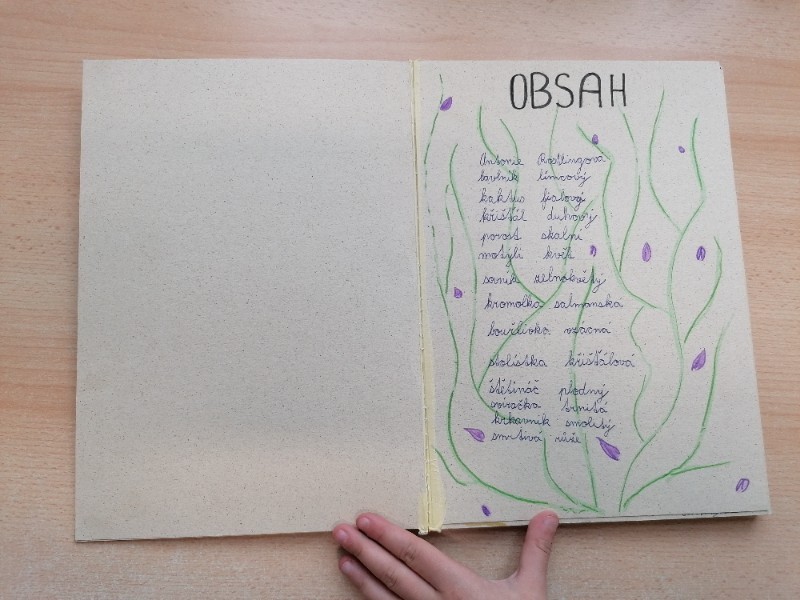 OBSAH
Antonie Rostlingová
bavlník límcový
kaktus fialový
křišťál duhový
porost skalní
motýlí květ
sevník zelnokvětý
kromolka salmonská
bouřlivka vzácná
stolístka křišťálová
štětináč plodný
trnitá
krkavník smolitý
smrtivá růže